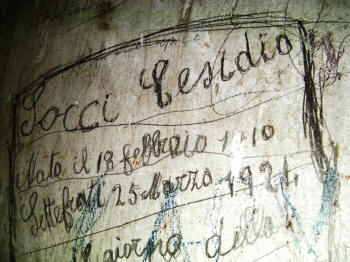 Socci Cesidio
Nato il 18 febbraio 1910
Settefrati 25 Marzo 1924
il giorno dello